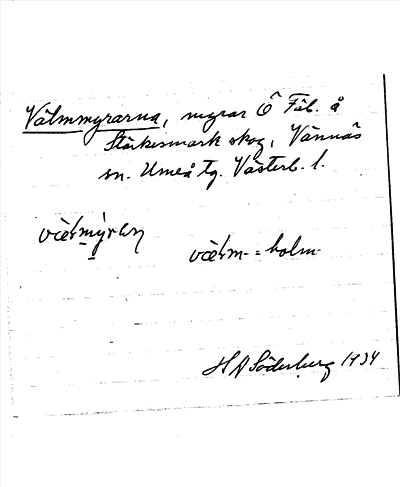 Välmmyrarna, myrar Ö Fäb. å
Stärkesmark skog, Vännäs
sn. Umeå tg. Västerb. l.
holm
H A Söderberg 1934